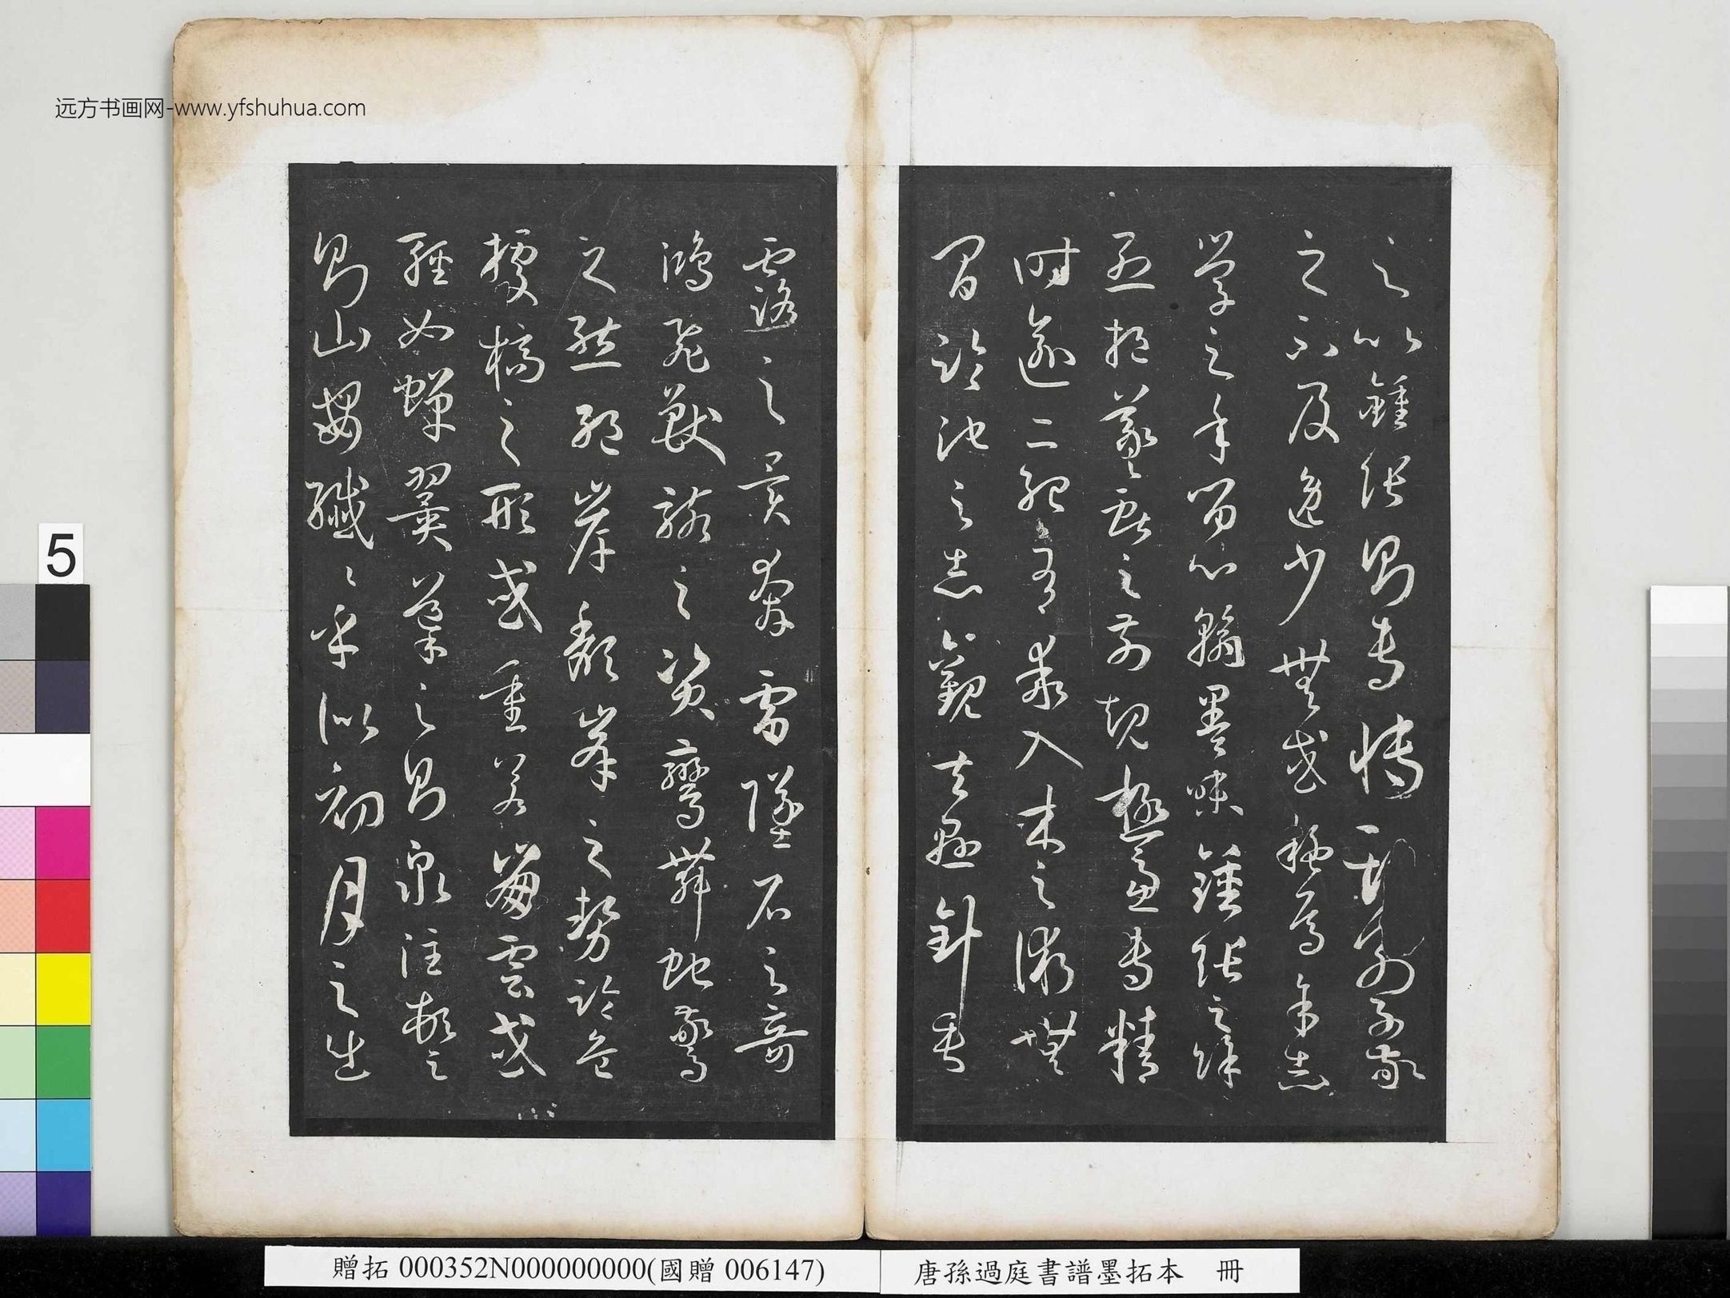 远方书画网-www.yfshuhua.com
之以鍾張則專博斯別子敬
之不及逸少無或疑焉余志
學之年留心翰墨味鍾張之餘
烈挹羲獻之前規極慮專精
時逾二紀有乖入木之術無
間臨池之志觀夫懸針垂
露之異奔雷墜石之奇
鴻飛獸駭之資鸞舞蛇驚
之態絕岸頹峯之勢臨危
據槁之形或重若崩雲或
輕如蟬翼導之則泉注頓之
則山安纖〻乎似初月之出
5
贈拓 000352N000000000(國贈 006147)
唐孫過庭書譜墨拓本 冊